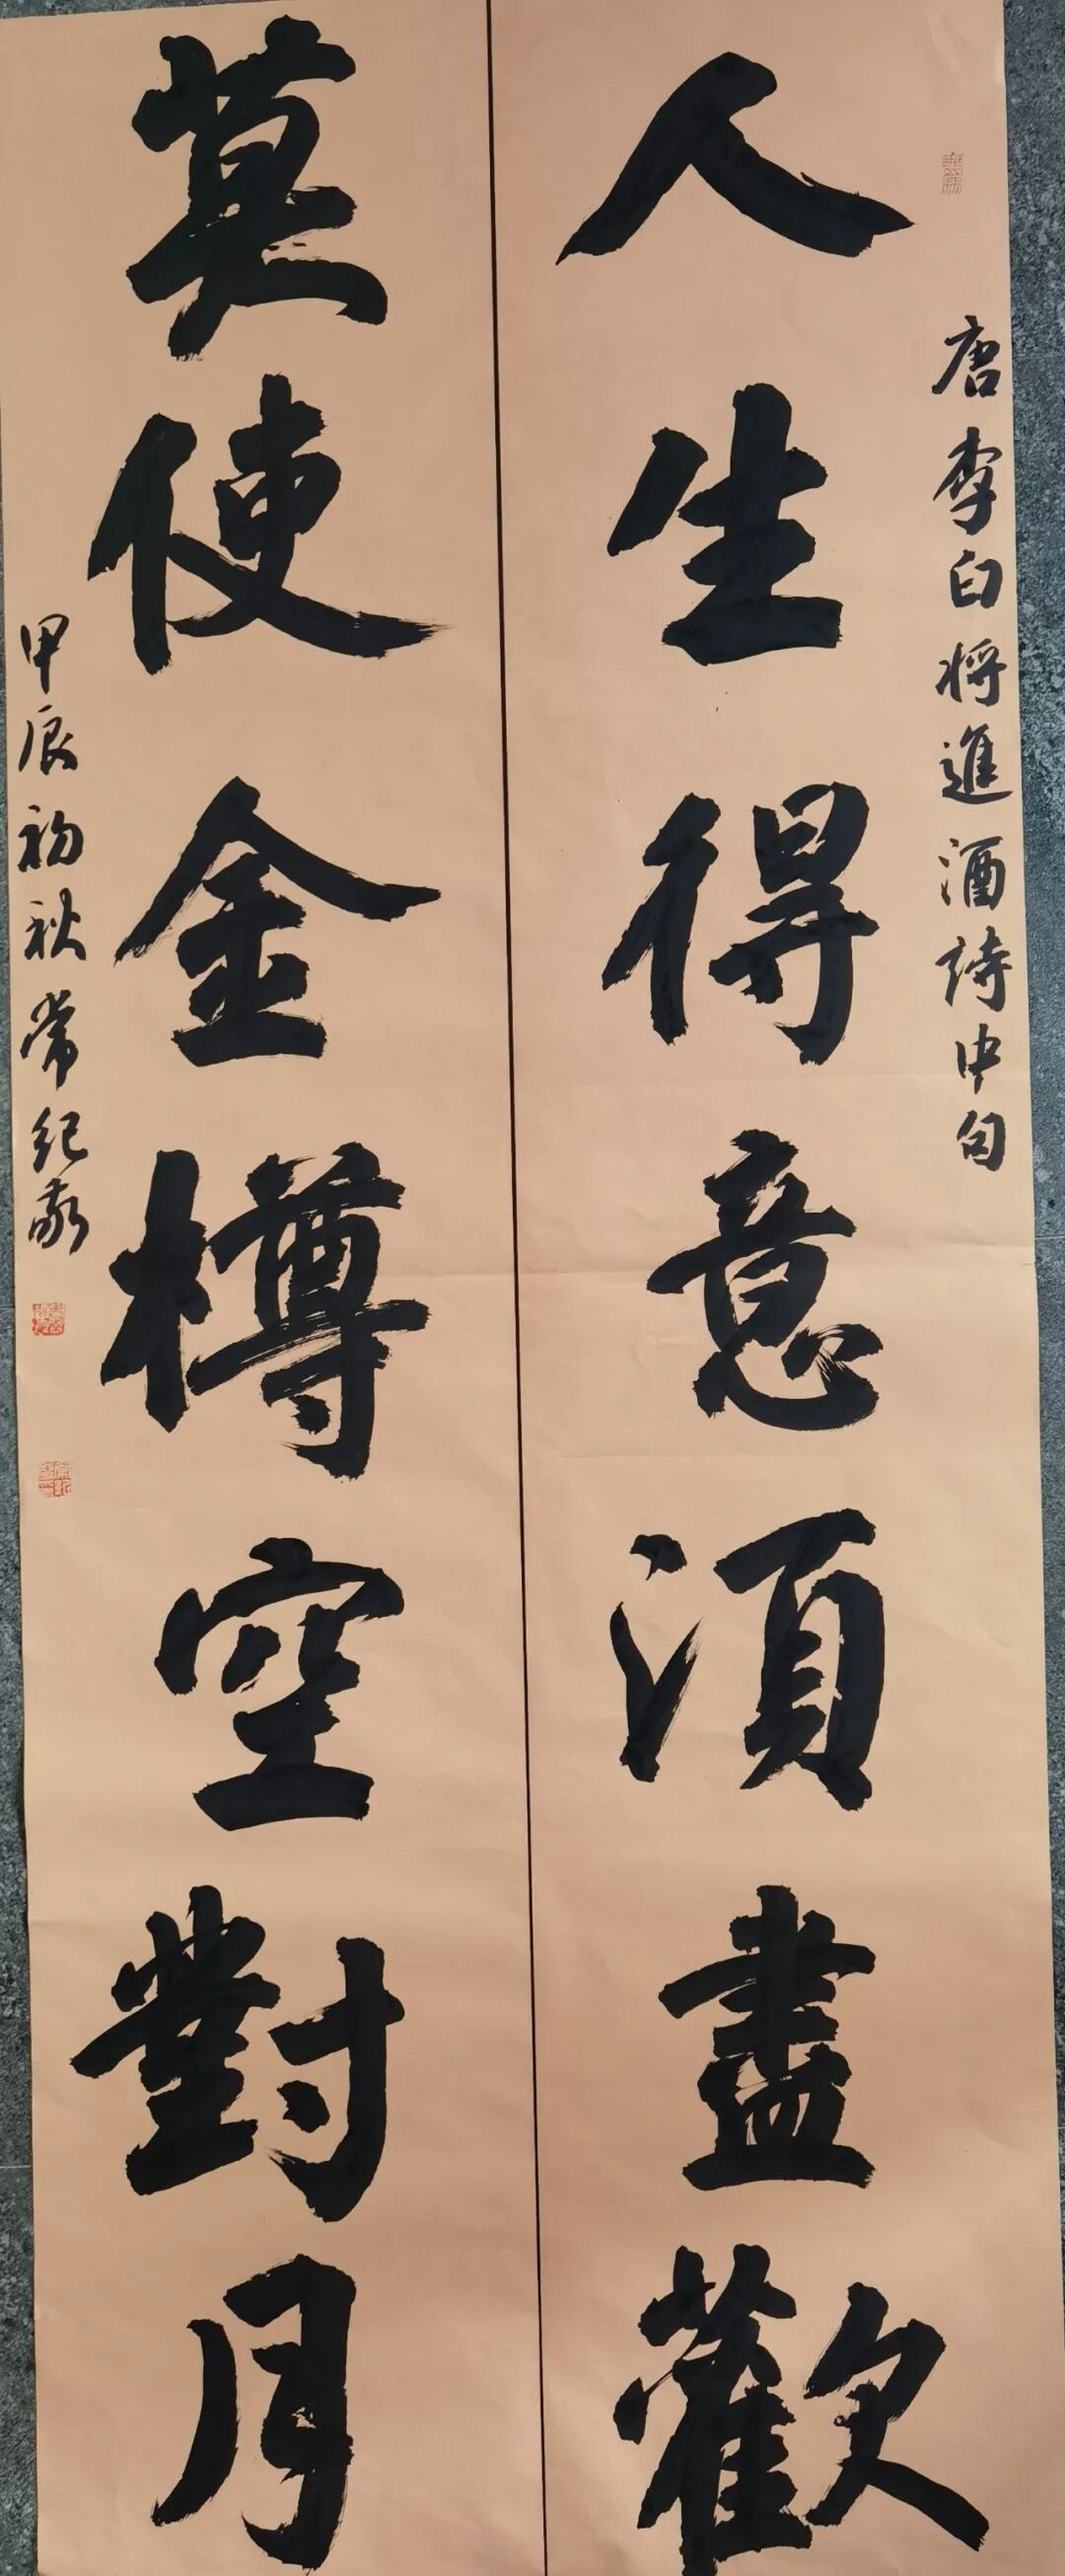 唐李白將進酒詩中句
人生得意須盡歡
莫使金樽空對月
甲辰初秋常纪敬